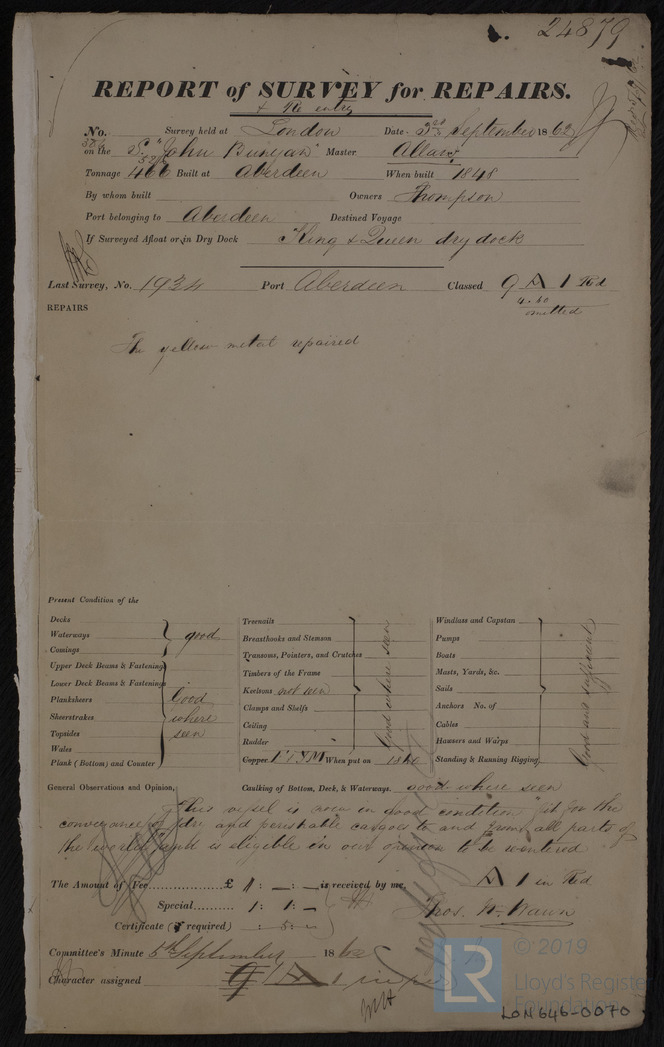 24879
REPORT of SURVEY for REPAIRS.
& Re entry
No. Survey held at London Date 3rd September 1862
on the S. "John Bunyan" Master Allan
Tonnage 466 Built at Aberdeen When built 1848
By whom built Owners Thompson
Port belonging to Aberdeen Destined Voyage
If Surveyed Afloat or in Dry Dock King & Queen dry dock
Last Survey, No. 1934 Port Aberdeen Classed 9 A 1 Red
4.60
omitted
REPAIRS
The yellow metal repaired
Present Condition of the
Decks
Waterways
Comings
good
Upper Deck Beams & Fastenings
Lower Deck Beams & Fastenings
Planksheers
Sheerstrakes
Topsides
Wales
Plank (Bottom) and Counter
Good
where
seen
Treenails
Breasthooks and Stemson
Transoms, Pointers, and Crutches
Timbers of the Frame
Keelsons not seen
Clamps and Shelfs
Ceiling
Rudder
Good where seen
Copper When put on
Windlass and Capstan
Pumps
Boats
Masts, Yards, &c.
Sails
Anchors No. of
Cables
Hawsers and Warps
Standing & Running Rigging
Good and sufficient
General Observations and Opinion, Caulking of Bottom, Deck, & Waterways. good where seen
This vessel is now in good condition fit for the
conveyance of dry and perishable cargoes to and from all parts of
the world and is eligible in our opinion to be
A 1 in Red
The Amount of Fee £ 1: –: – is received by me,
Special 1: 1: –
Thos. W. Wawn
Certificate (if required) : 5: –
Committee's Minute 5th September 1862
Character assigned A 1 in red
© 2019
LR
Lloyd's Register
Foundation
LON646-0070